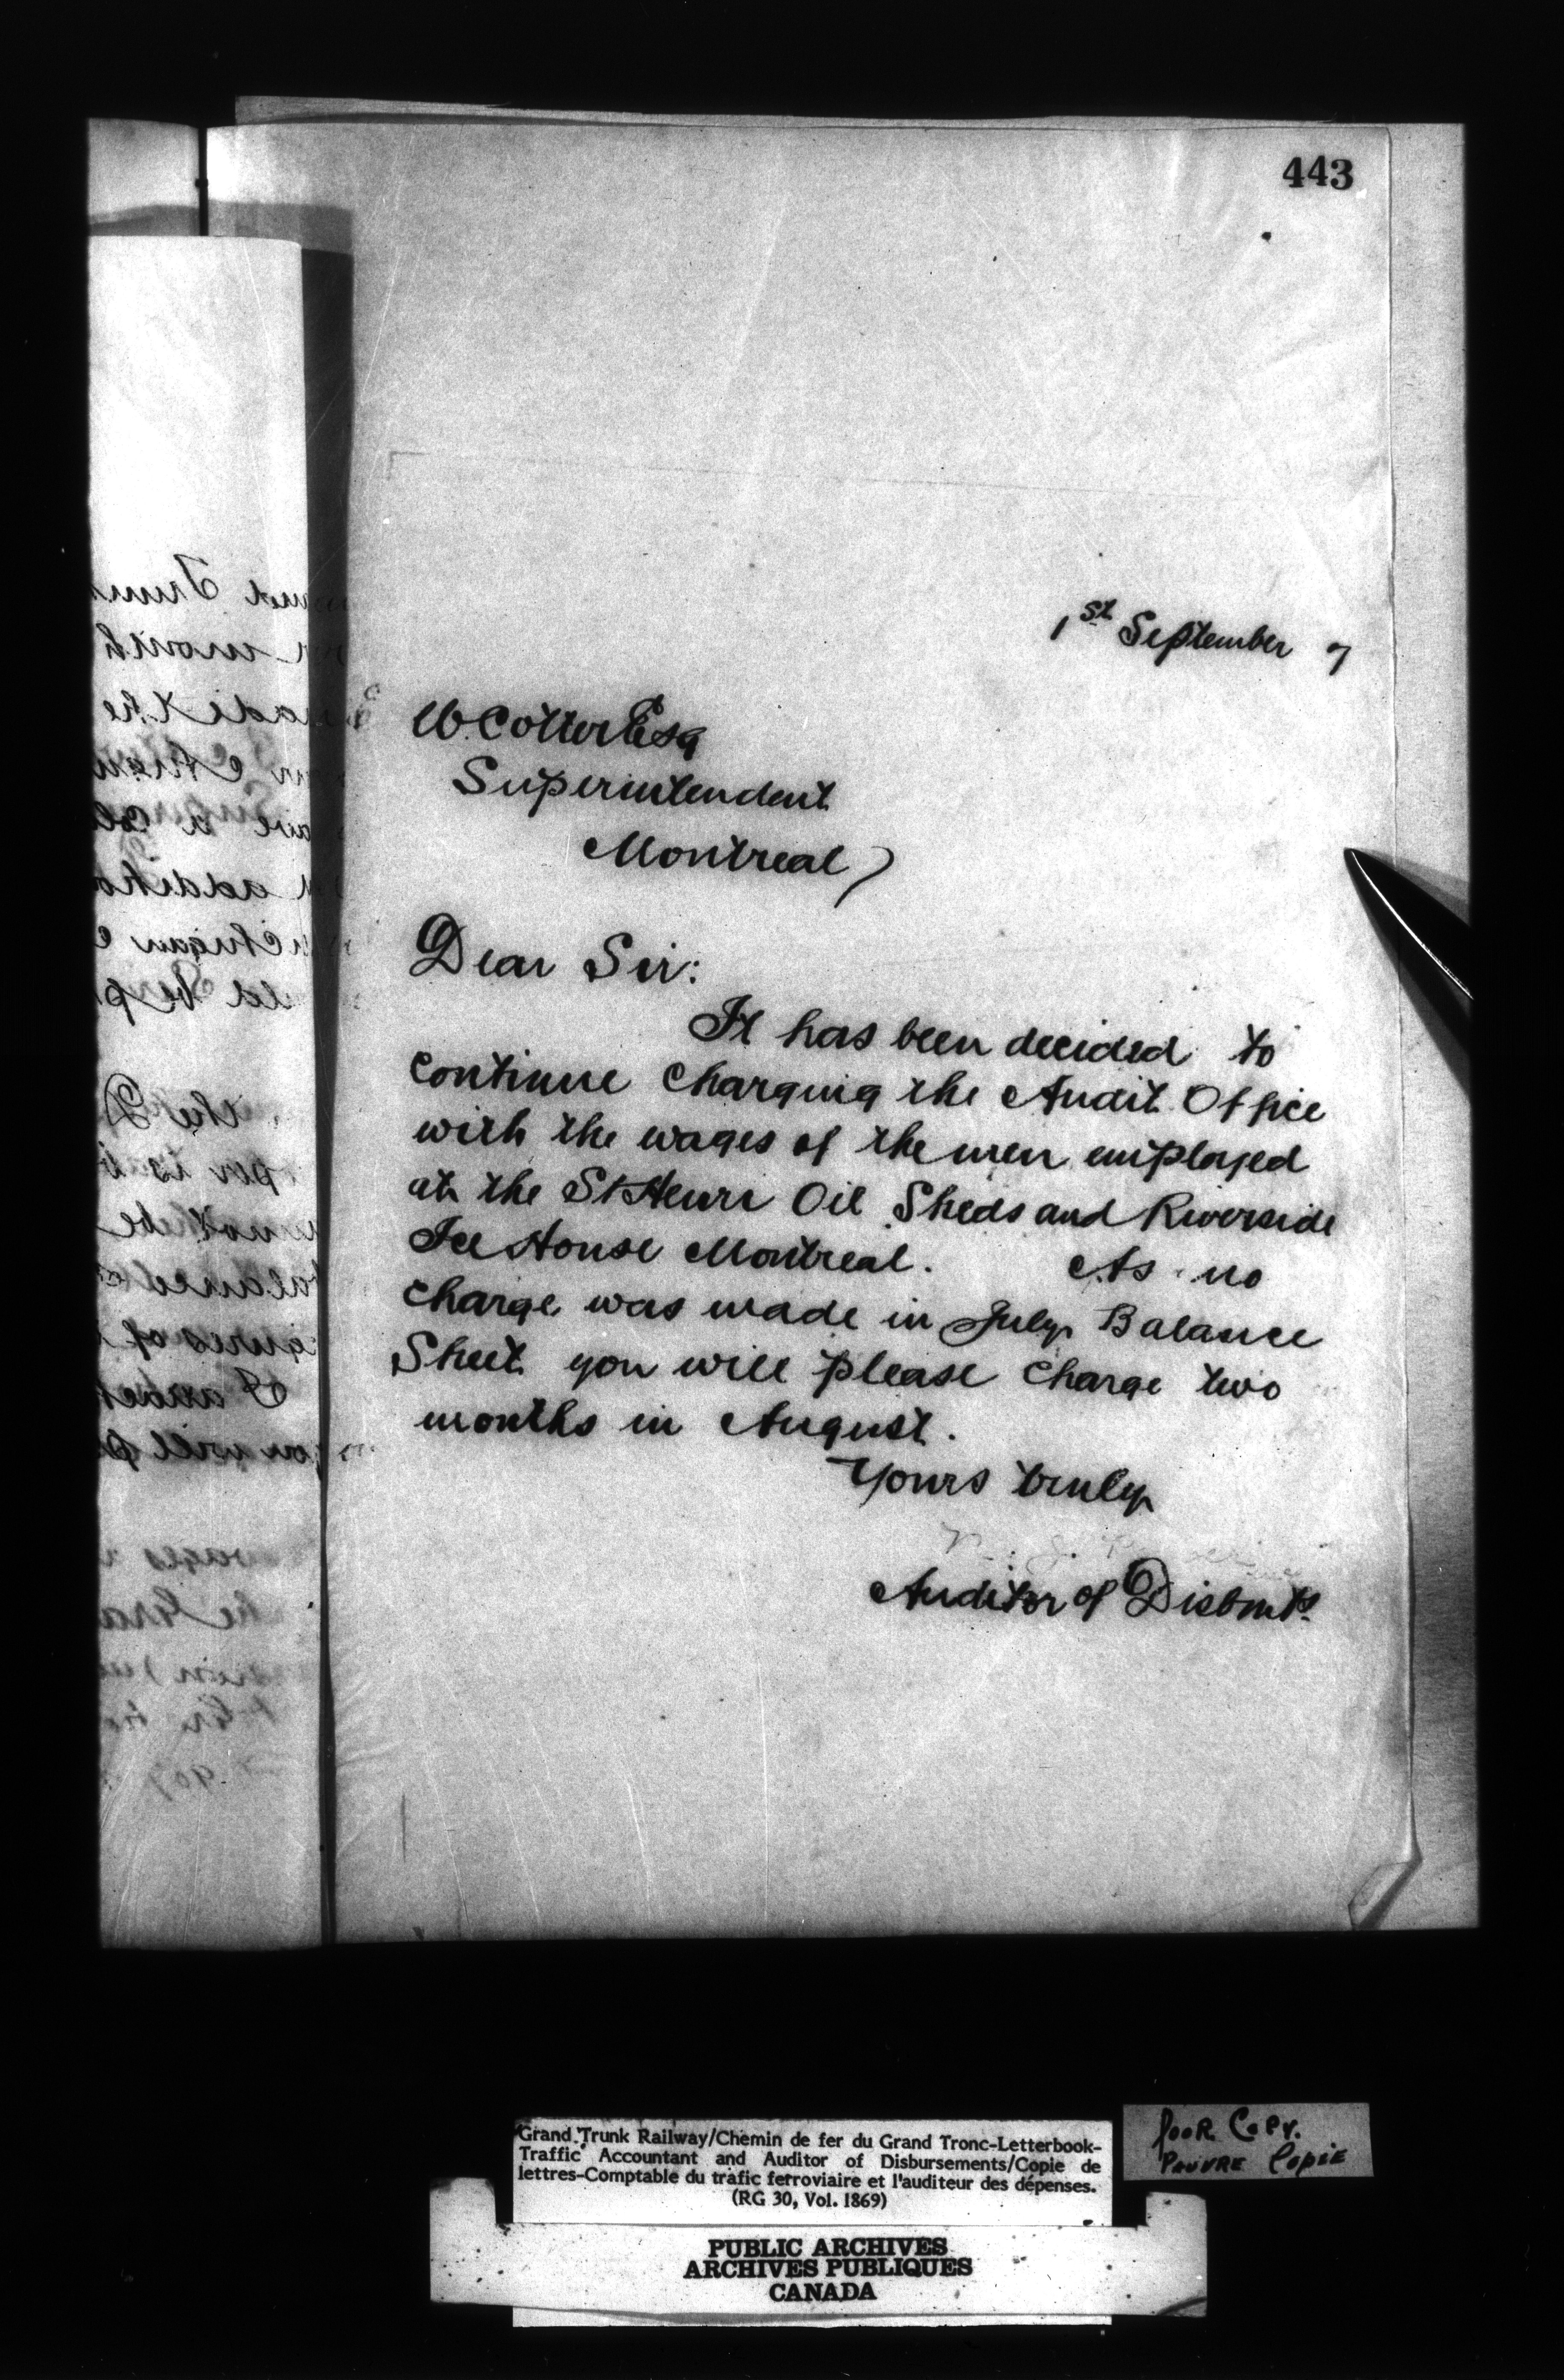 443
1st September 7
W. Cotter Esq
Superintendent
Montreal
Dear Sir:
It has been decided to
continue charging the Audit Office
with the wages of the men employed
at the St Henri Oil Sheds and Riverside
Ice House Montreal. As no
charge was made in July Balance
Sheet you will please charge two
months in August.
Yours truly
Auditor of Disbmts.
Grand Trunk Railway/Chemin de fer du Grand Tronc-Letterbook-
Traffic Accountant and Auditor of Disbursements/Copie de
lettres-Comptable du trafic ferroviaire et l'auditeur des dépenses.
(RG 30, Vol. 1869)
POOR COPY.
PAUVRE COPIE
PUBLIC ARCHIVES
ARCHIVES PUBLIQUES
CANADA